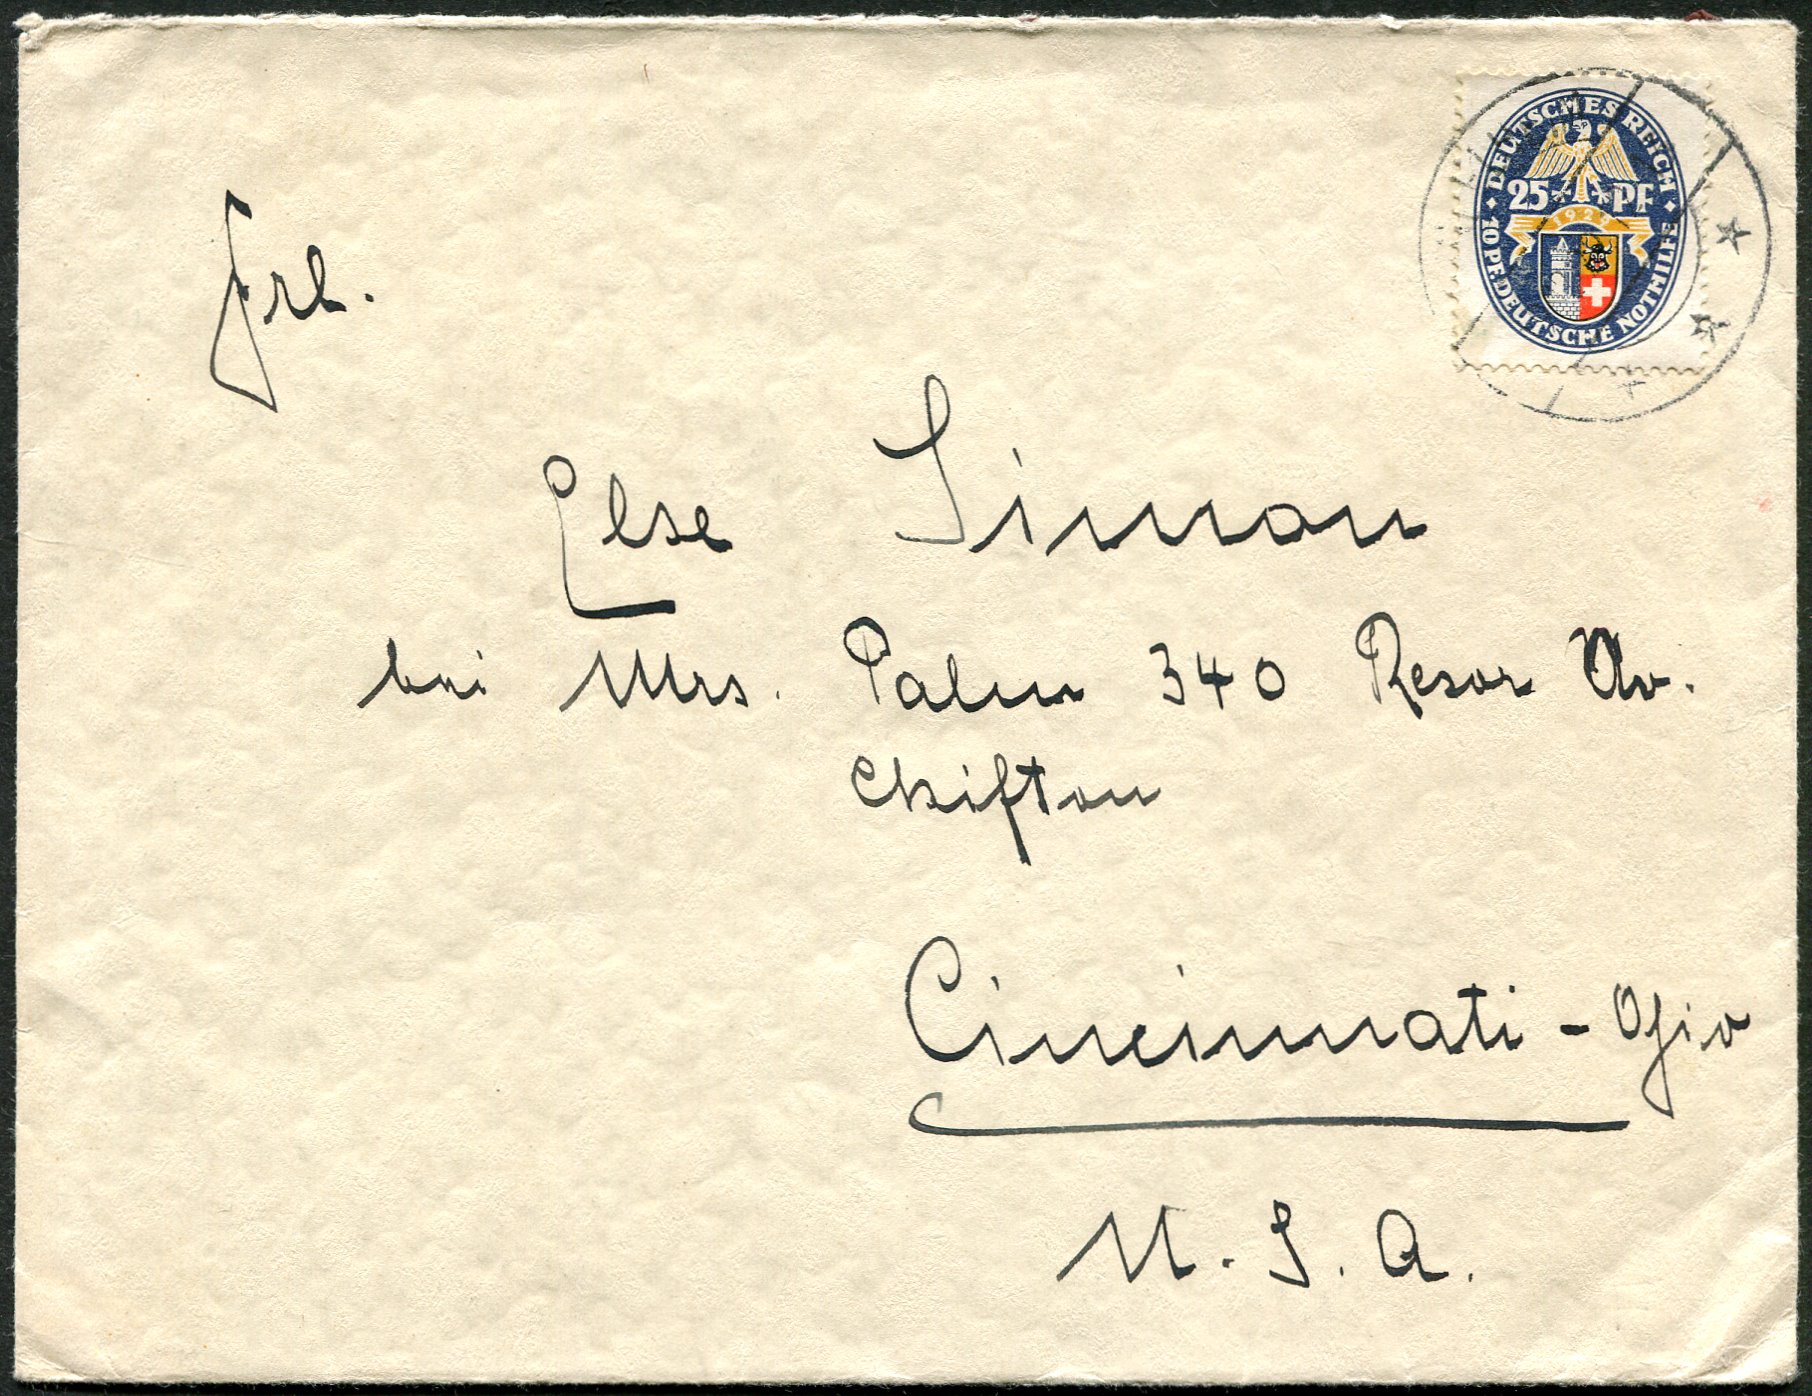 DEUTSCHES REICH
25 PF
1929
10 PF. DEUTSCHE NOTHILFE
Frl.
Else Simon
bei Mrs. Palm 340 Resor Av.
Clifton
Cincinnati - Ohio
U. S. A.